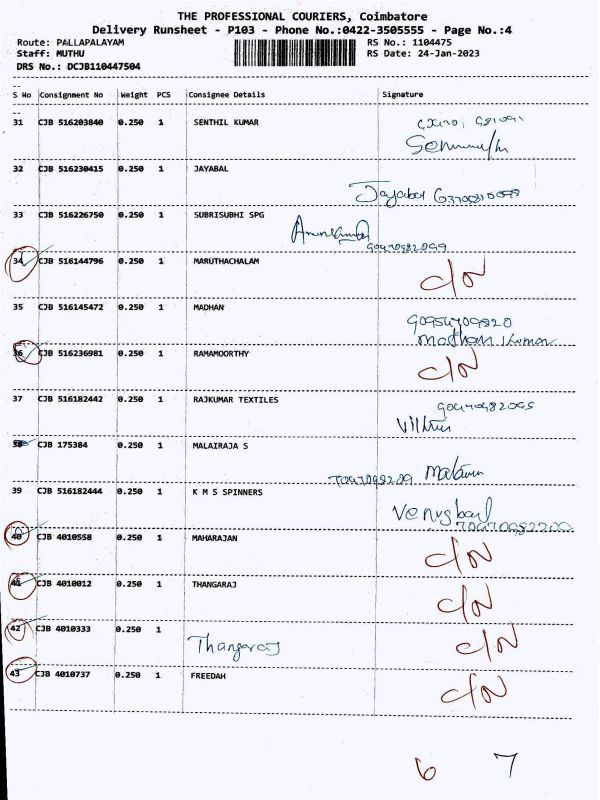 THE PROFESSIONAL COURIERS, Coimbatore
Delivery Runsheet - P103 - Phone No.:0422-3505555 - Page No.:4
Route: PALLAPALAYAM RS No.: 1104475
Staff: MUTHU RS Date: 24-Jan-2023
DRS No.: DCJB110447504
S No Consignment No Weight PCS Consignee Details Signature
31 CJB 516203840 0.250 1 SENTHIL KUMAR
32 CJB 516230415 0.250 1 JAYABAL
Jayabal
33 CJB 516226750 0.250 1 SUBRISUBHI SPG
34 CJB 516144796 0.250 1 MARUTHACHALAM
C/N
35 CJB 516145472 0.250 1 MADHAN
Madhan Kumar
36 CJB 516236981 0.250 1 RAMAMOORTHY
C/N
37 CJB 516182442 0.250 1 RAJKUMAR TEXTILES
38 CJB 175384 0.250 1 MALAIRAJA S
39 CJB 516182444 0.250 1 K M S SPINNERS
40 CJB 4010558 0.250 1 MAHARAJAN
C/N
41 CJB 4010012 0.250 1 THANGARAJ
C/N
42 CJB 4010333 0.250 1
Thangaraj C/N
43 CJB 4010737 0.250 1 FREEDAH
C/N
6 7